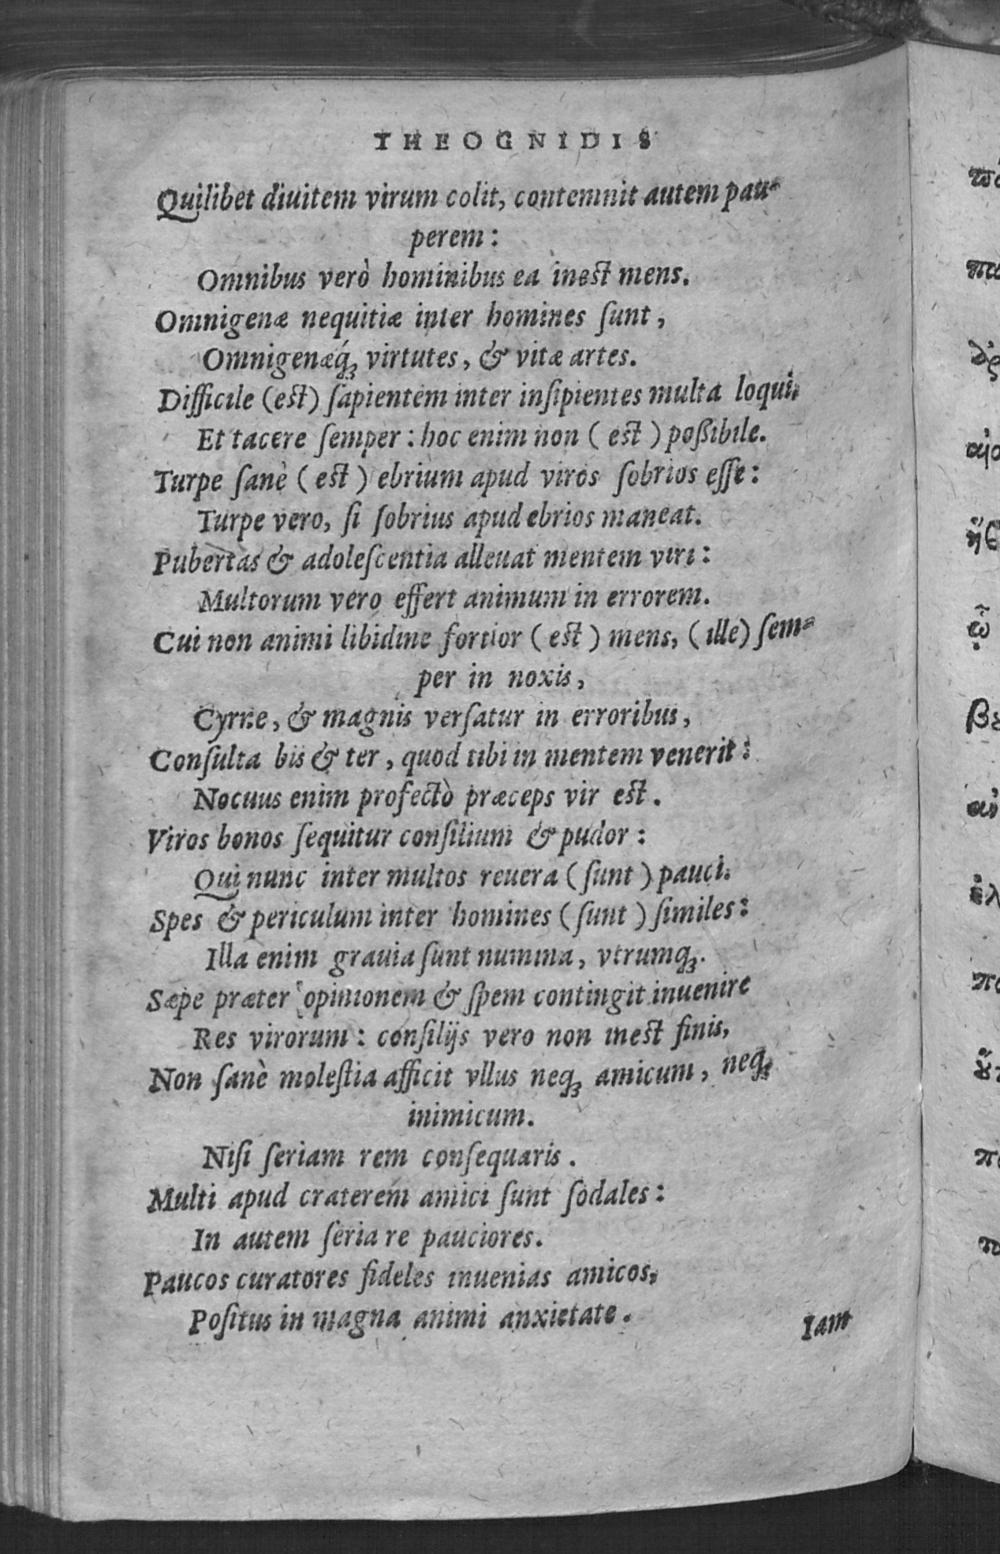 THEOGNIDIS
Quilibet diuitem virum colit, contemnit autem pau-
perem:
Omnibus verò hominibus ea inest mens.
Omnigenæ nequitiæ inter homines ſunt,
Omnigenæq́ꝫ virtutes, & vitæ artes.
Difficile (est) ſapientem inter inſipientes multa loqui,
Et tacere ſemper: hoc enim non (est) poßibile.
Turpe ſanè (est) ebrium apud viros ſobrios eſſe:
Turpe vero, ſi ſobrius apud ebrios maneat.
Pubertas & adoleſcentia alleuat mentem viri:
Multorum vero effert animum in errorem.
Cui non animi libidine fortior (est) mens, (ille) ſem-
per in noxis,
Cyrne, & magnis verſatur in erroribus,
Conſulta bis & ter, quod tibi in mentem venerit:
Nocuus enim profectò præceps vir est.
Viros bonos ſequitur conſilium & pudor:
Qui nunc inter multos reuera (ſunt) pauci.
Spes & periculum inter homines (ſunt) ſimiles:
Illa enim grauia ſunt numina, vtrumqꝫ.
Sæpe præter opinionem & ſpem contingit inuenire
Res virorum: conſilijs vero non inest finis,
Non ſanè moleſtia afficit vllus neqꝫ amicum, neqꝫ
inimicum.
Niſi ſeriam rem conſequaris.
Multi apud craterem amici ſunt ſodales:
In autem ſeria re pauciores.
Paucos curatores fideles inuenias amicos,
Poſitus in magna animi anxietate.
Iam